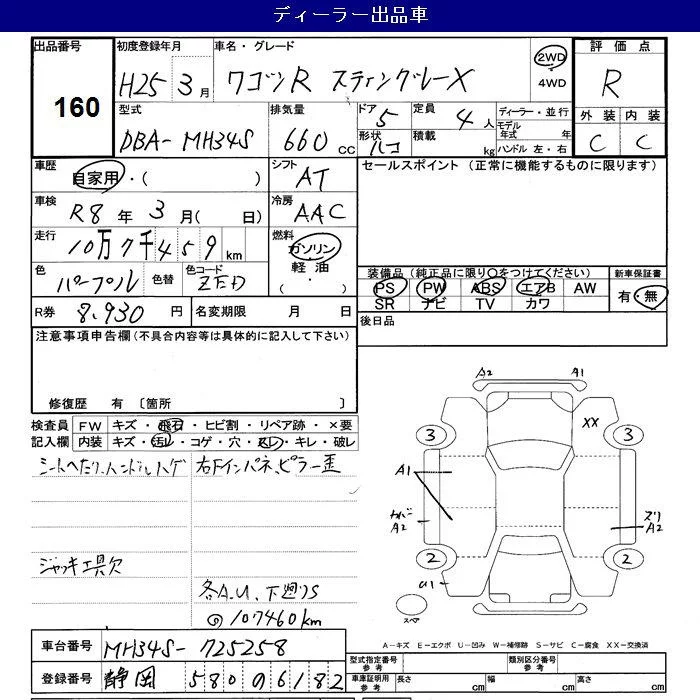 ディーラー出品車
出品番号 160
初度登録年月 H25 3月
車名・グレード ワゴンR スティングレーX
2WD・4WD
評価点 R
型式 DBA-MH34S
排気量 660 CC
ドア 5
形状 ハコ
定員 4人
積載 kg
ディーラー・並行
モデル年式 年
ハンドル 左・右
外装 C
内装 C
車歴 自家用・( )
シフト AT
セールスポイント (正常に機能するものに限ります)
車検 R8年3月( 日)
冷房 AAC
走行 10万7千459km
燃料 ガソリン・軽油・
色 パープル
色替
色コード ZED
装備品(純正品に限り○をつけてください)
新車保証書 有・無
PS PW ABS エアB AW
SR ナビ TV カワ
R券 8,930円
名変期限 月 日
後日品
注意事項申告欄(不具合内容等は具体的に記入して下さい)
修復歴 有 〔箇所 〕
検査員記入欄
FW キズ・飛石・ヒビ割・リペア跡・×要
内装 キズ・汚レ・コゲ・穴・スレ・キレ・破レ
シートへたり、ハンドルハゲ
右Fインパネ、ピラー歪
ジャッキ工具欠
各A.U、下廻りS
107460km
A2 A1
XX
3 3
A1
A2
スリ
A2
2 2
スペア
A-キズ E-エクボ U-凹み W-補修跡 S-サビ C-腐食 XX-交換済
車台番号 MH34S-725258
登録番号 静岡 580 6182
型式指定番号 参考
類別区分番号 参考
車庫証明用 参考
長さ cm
幅 cm
高さ cm